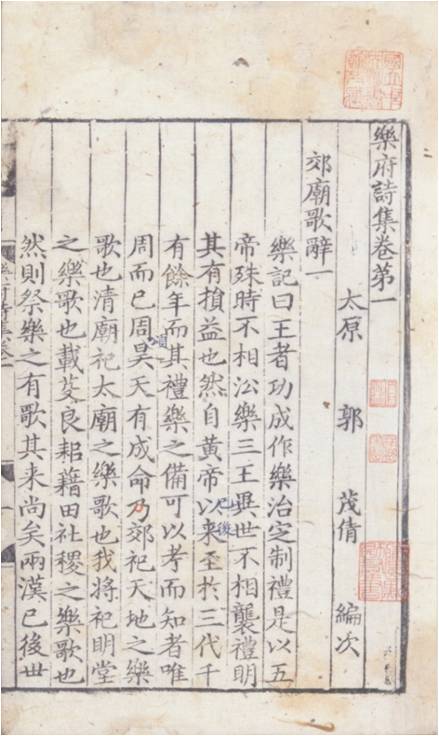 樂府詩集卷第一
太原 郭 茂倩 編次
郊廟歌辭一
樂記曰王者功成作樂治定制禮是以五
帝殊時不相㳂樂三王異世不相襲禮明
其有損益也然自黄帝以来至扵三代千
已後
有餘年而其禮樂之備可以考而知者唯
周而已周昊天有成命乃郊祀天地之樂
頌
歌也清廟祀太廟之樂歌也我將祀明堂
之樂歌也載芟良耜藉田社稷之樂歌也
然則祭樂之有歌其来尚矣兩漢已後世